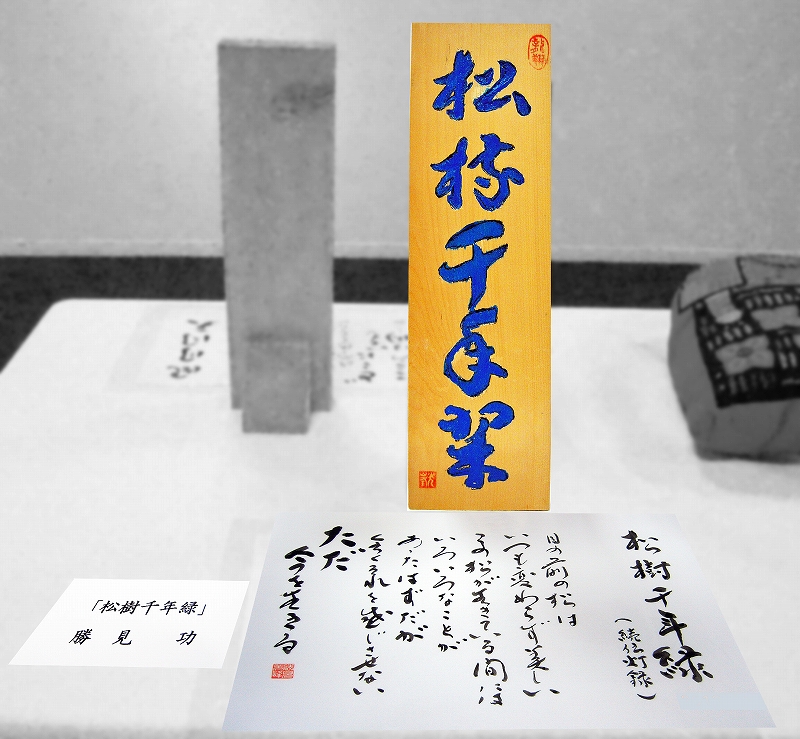 松樹千年翠
松樹千年緑
(続伝灯録)
目の前の松は
いつも変わらず美しい
その松が生きている間には
いろいろなことが
あったはずだが
全くそれを感じさせない
ただ
今を生きる
「松樹千年緑」
勝見 功